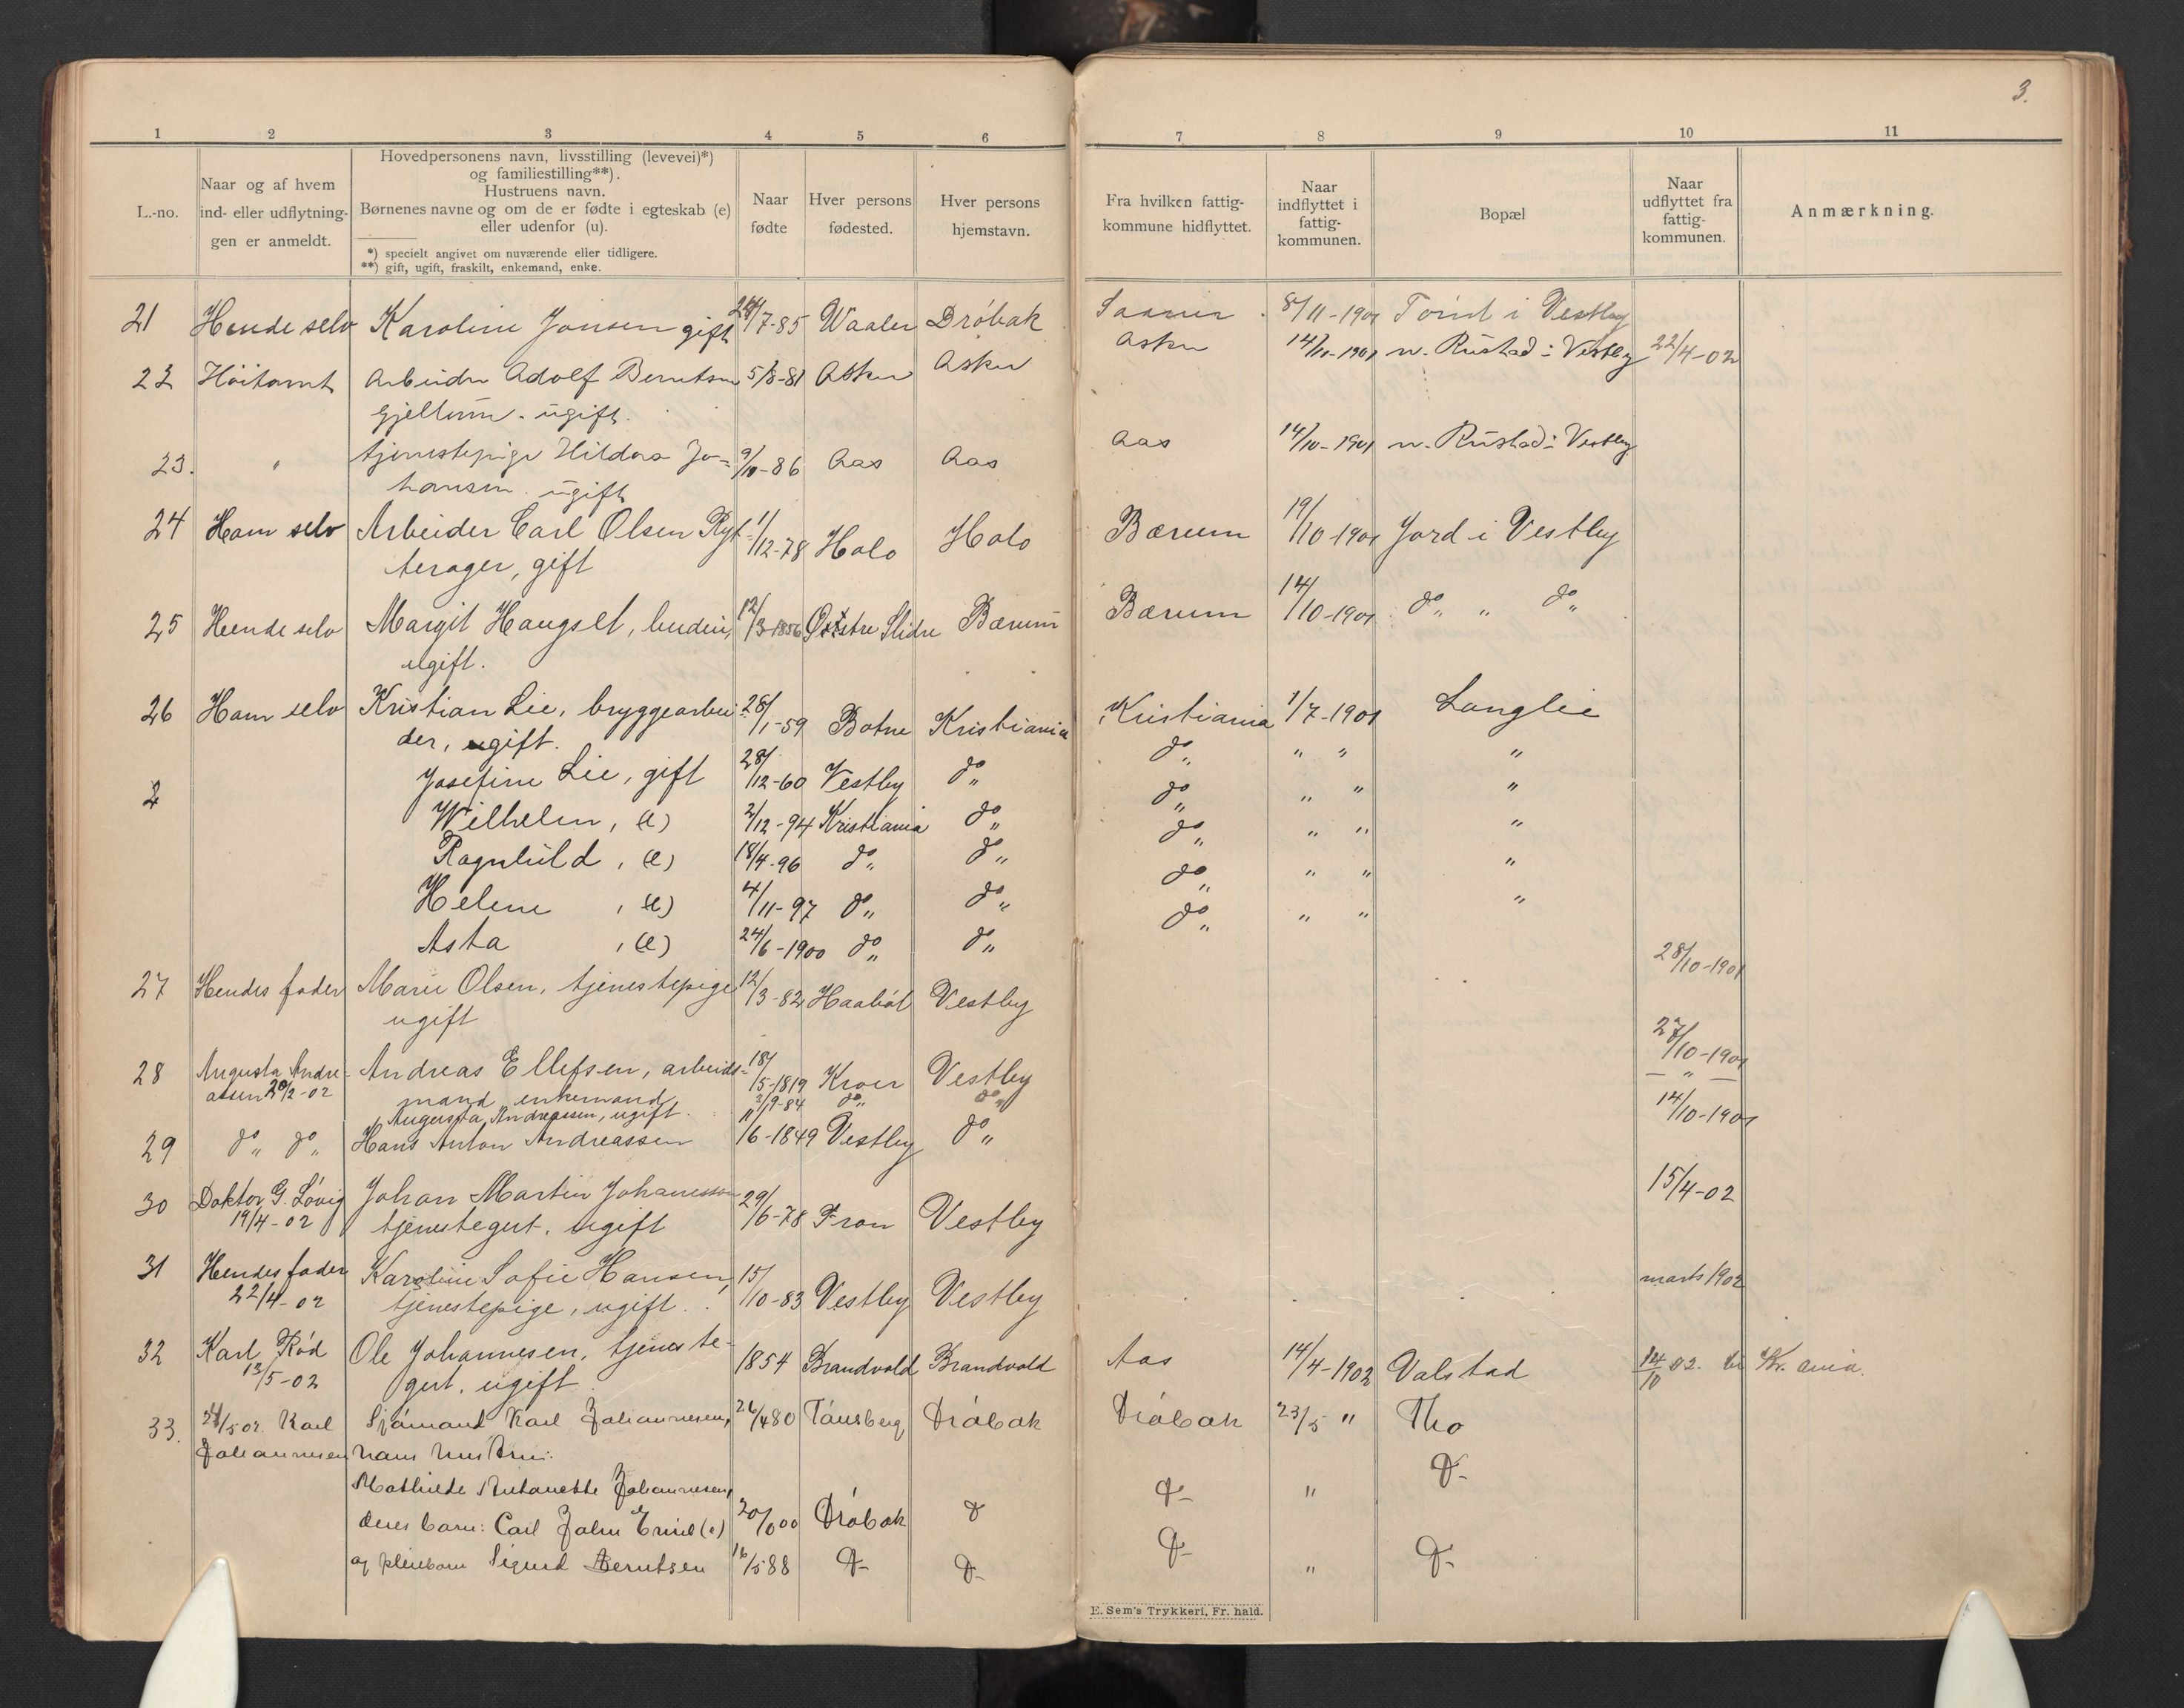 3.
1 2 3 4 5 6 7 8 9 10 11
L.-no.
Naar og af hvem
ind- eller udflytnin-
gen er anmeldt.
Hovedpersonens navn, livsstilling (levevei)*)
og familiestilling**).
Hustruens navn.
Børnenes navne og om de er fødte i egteskab (e)
eller udenfor (u).
*) specielt angivet om nuværende eller tidligere.
**) gift, ugift, fraskilt, enkemand, enke.
Naar
fødte
Hver persons
fødested.
Hver persons
hjemstavn.
Fra hvilken fattig-
kommune hidflyttet.
Naar
indflyttet i
fattig-
kommunen.
Bopæl
Naar
udflyttet fra
fattig-
kommunen.
Anmærkning.
21 Hende selv Karoline Jonsen gift /7-85 Waaler Dróbak 8/11-1901 i Vestby
22 Höitomt Arbeider Adolf Berntsen 5/8-81 Asker Asker Asker 14/11-1901 n. Rustad i Vestby 22/4-02
Gjellum. ugift.
23. " tjenestepige Hilda Jo= 9/10-86 Aas Aas Aas 14/10-1901 n. Rustad i Vestby
hansen. ugift
24 Ham selv Arbeider Carl Olsen Ryt- 1/12-78 Holo Holo Bærum 19/10-1901 Jord i Vestby
terager, gift
25 Hende selv Margit Haugset, budeie, 12/3-1856 Østre Slidre Bærum Bærum 14/10-1901 do " do
ugift.
26 Ham selv Kristian Lie, bryggearbei- 28/1-59 Botne Kristiania Kristiania 1/7-1901 Langlie
der, ugift.
Josefine Lie, gift 28/12-60 Vestby do " do " " " "
2 Wilhelm, (e) 2/12-94 Kristiania do " do " " " "
Ragnhild, (e) 18/4-96 do " do " do " " " "
Helene, (e) 4/11-97 do " do " do " " " "
Asta, (e) 24/6-1900 do " do " do " " " "
27 Hendes fader Marie Olsen, tjenestepige 12/3-82 Haaböl Vestby 28/10-1901
ugift
28 Augusta Andre- Andreas Ellefsen, arbeids- 18/5-1819 Kroer Vestby 27/10-1901
assen 20/2-02 mand enkemand
Augusta Andreassen, ugift. 2/9-84 do " do " — " —
29 do " do " Hans Anton Andreassen 11/6-1849 Vestby do " 14/10-1901
30 Doktor G. Lövig Johan Martin Johanesson 29/6-78 Fron Vestby 15/4-02
19/4-02 tjenestegut, ugift
31 Hendes fader Karoline Sofie Hansen, 15/10-83 Vestby Vestby marts 1902
22/4-02 tjenestepige, ugift.
32 Karl Röd Ole Johannesen, tjeneste- 1854 Brandvold Brandvold Aas 14/4-1902 Valstad 14/10 02. til Kr.ania.
13/5-02 gut, ugift.
33. 24/5 02. Karl Sjömand Karl Johannesen, 26/4 80 Tönsberg Dröbak Dröbak 23/5 " Tho
Johannesen hans hustru:
Mathilde Antonette Johannesen, do " do
deres barn: Carl John Emil (e) 20/10 00 Dröbak do
og pleiebarn Sigurd Berntsen 16/5 88 do do do " do
E. Sem's Trykkeri, Fr. hald.